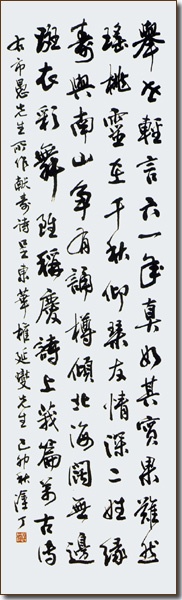 舉世輕言六一年真如其實果難然
瑤桃靈至千秋仰琴友情深二姓緣
壽與南山爭有誦樽傾北海闊無邊
斑衣彩舞雖稱慶詩上義篇萬古傳
右市愚先生所作獻壽詩呈宗華權延燮先生 己卯秋 淫丁